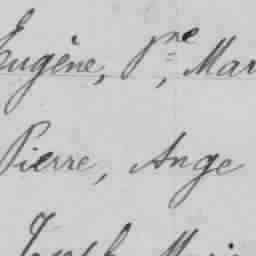 Eugène, Pre, Mar
Pierre, Ange
Joseph, Mari